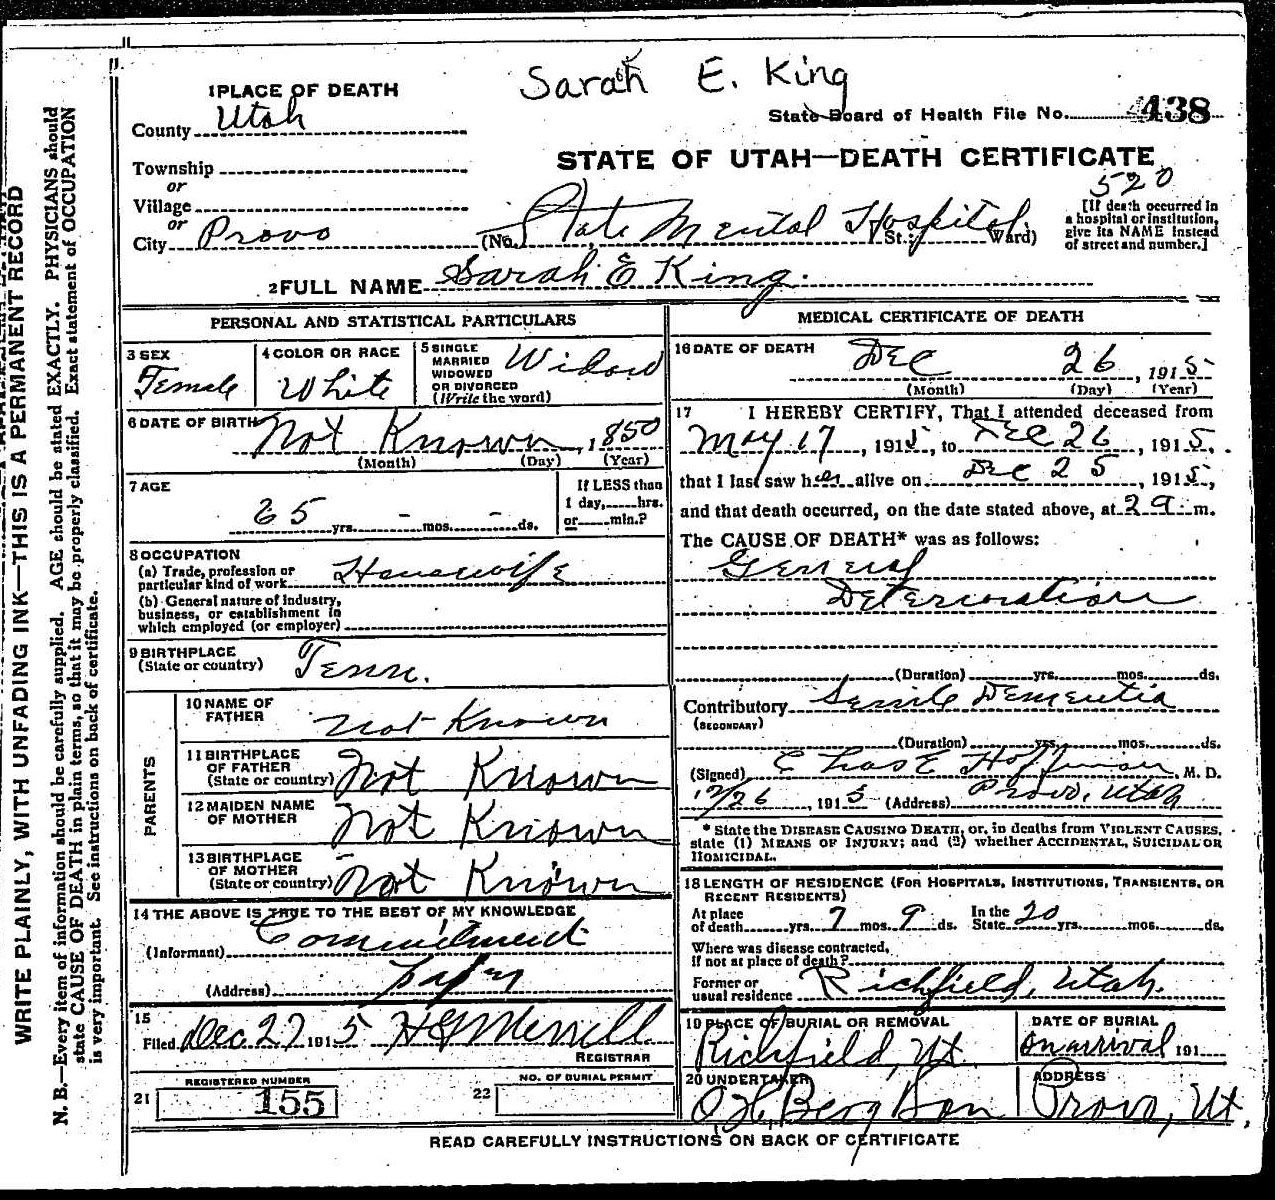 Sarah E. King
1 PLACE OF DEATH
State Board of Health File No. 438
County Utah
STATE OF UTAH—DEATH CERTIFICATE
Township
or
Village
or
City Provo (No. State Mental Hospital St.; Ward)
520
[If death occurred in
a hospital or institution,
give its NAME instead
of street and number.]
2 FULL NAME Sarah E King.
PERSONAL AND STATISTICAL PARTICULARS
3 SEX
Female
4 COLOR OR RACE
White
5 SINGLE
MARRIED
WIDOWED
OR DIVORCED
(Write the word)
Widow
6 DATE OF BIRTH Not Known, 1850
(Month) (Day) (Year)
7 AGE
65 yrs. - mos. - ds.
If LESS than
1 day, hrs.
or min.?
8 OCCUPATION
(a) Trade, profession or
particular kind of work Housewife
(b) General nature of industry,
business, or establishment in
which employed (or employer)
9 BIRTHPLACE
(State or country) Tenn.
PARENTS
10 NAME OF
FATHER not Known
11 BIRTHPLACE
OF FATHER
(State or country) Not Known
12 MAIDEN NAME
OF MOTHER Not Known
13 BIRTHPLACE
OF MOTHER
(State or country) Not Known
14 THE ABOVE IS TRUE TO THE BEST OF MY KNOWLEDGE
(Informant) Commitment
(Address) Papers
15
Filed Dec 27 1915 H G Merrill
REGISTRAR
REGISTERED NUMBER
21 155
NO. OF BURIAL PERMIT
22
MEDICAL CERTIFICATE OF DEATH
16 DATE OF DEATH Dec 26, 1915
(Month) (Day) (Year)
17 I HEREBY CERTIFY, That I attended deceased from
May 17, 1915, to Dec 26, 1915.
that I last saw her alive on Dec 25, 1915,
and that death occurred, on the date stated above, at 2 a. m.
The CAUSE OF DEATH* was as follows:
General
Deterioration
(Duration) yrs. mos. ds.
Contributory Senile Dementia
(SECONDARY)
(Duration) yrs. mos. ds.
(Signed) Chas E Hoffman, M. D.
12/26, 1915 (Address) Provo, Utah
* State the DISEASE CAUSING DEATH, or, in deaths from VIOLENT CAUSES,
state (1) MEANS OF INJURY; and (2) whether ACCIDENTAL, SUICIDAL OR
HOMICIDAL.
18 LENGTH OF RESIDENCE (FOR HOSPITALS, INSTITUTIONS, TRANSIENTS, OR
RECENT RESIDENTS)
At place
of death yrs. 7 mos. 9 ds. In the
State 20 yrs. mos. ds.
Where was disease contracted,
if not at place of death?
Former or
usual residence Richfield, Utah.
19 PLACE OF BURIAL OR REMOVAL
Richfield, Ut.
DATE OF BURIAL
On arrival 191
20 UNDERTAKER
O H, Berg & Son
ADDRESS
Provo, Ut.
READ CAREFULLY INSTRUCTIONS ON BACK OF CERTIFICATE
WRITE PLAINLY, WITH UNFADING INK—THIS IS A PERMANENT RECORD
N. B.—Every item of information should be carefully supplied. AGE should be stated EXACTLY. PHYSICIANS should
state CAUSE OF DEATH in plain terms, so that it may be properly classified. Exact statement of OCCUPATION
is very important. See instructions on back of certificate.